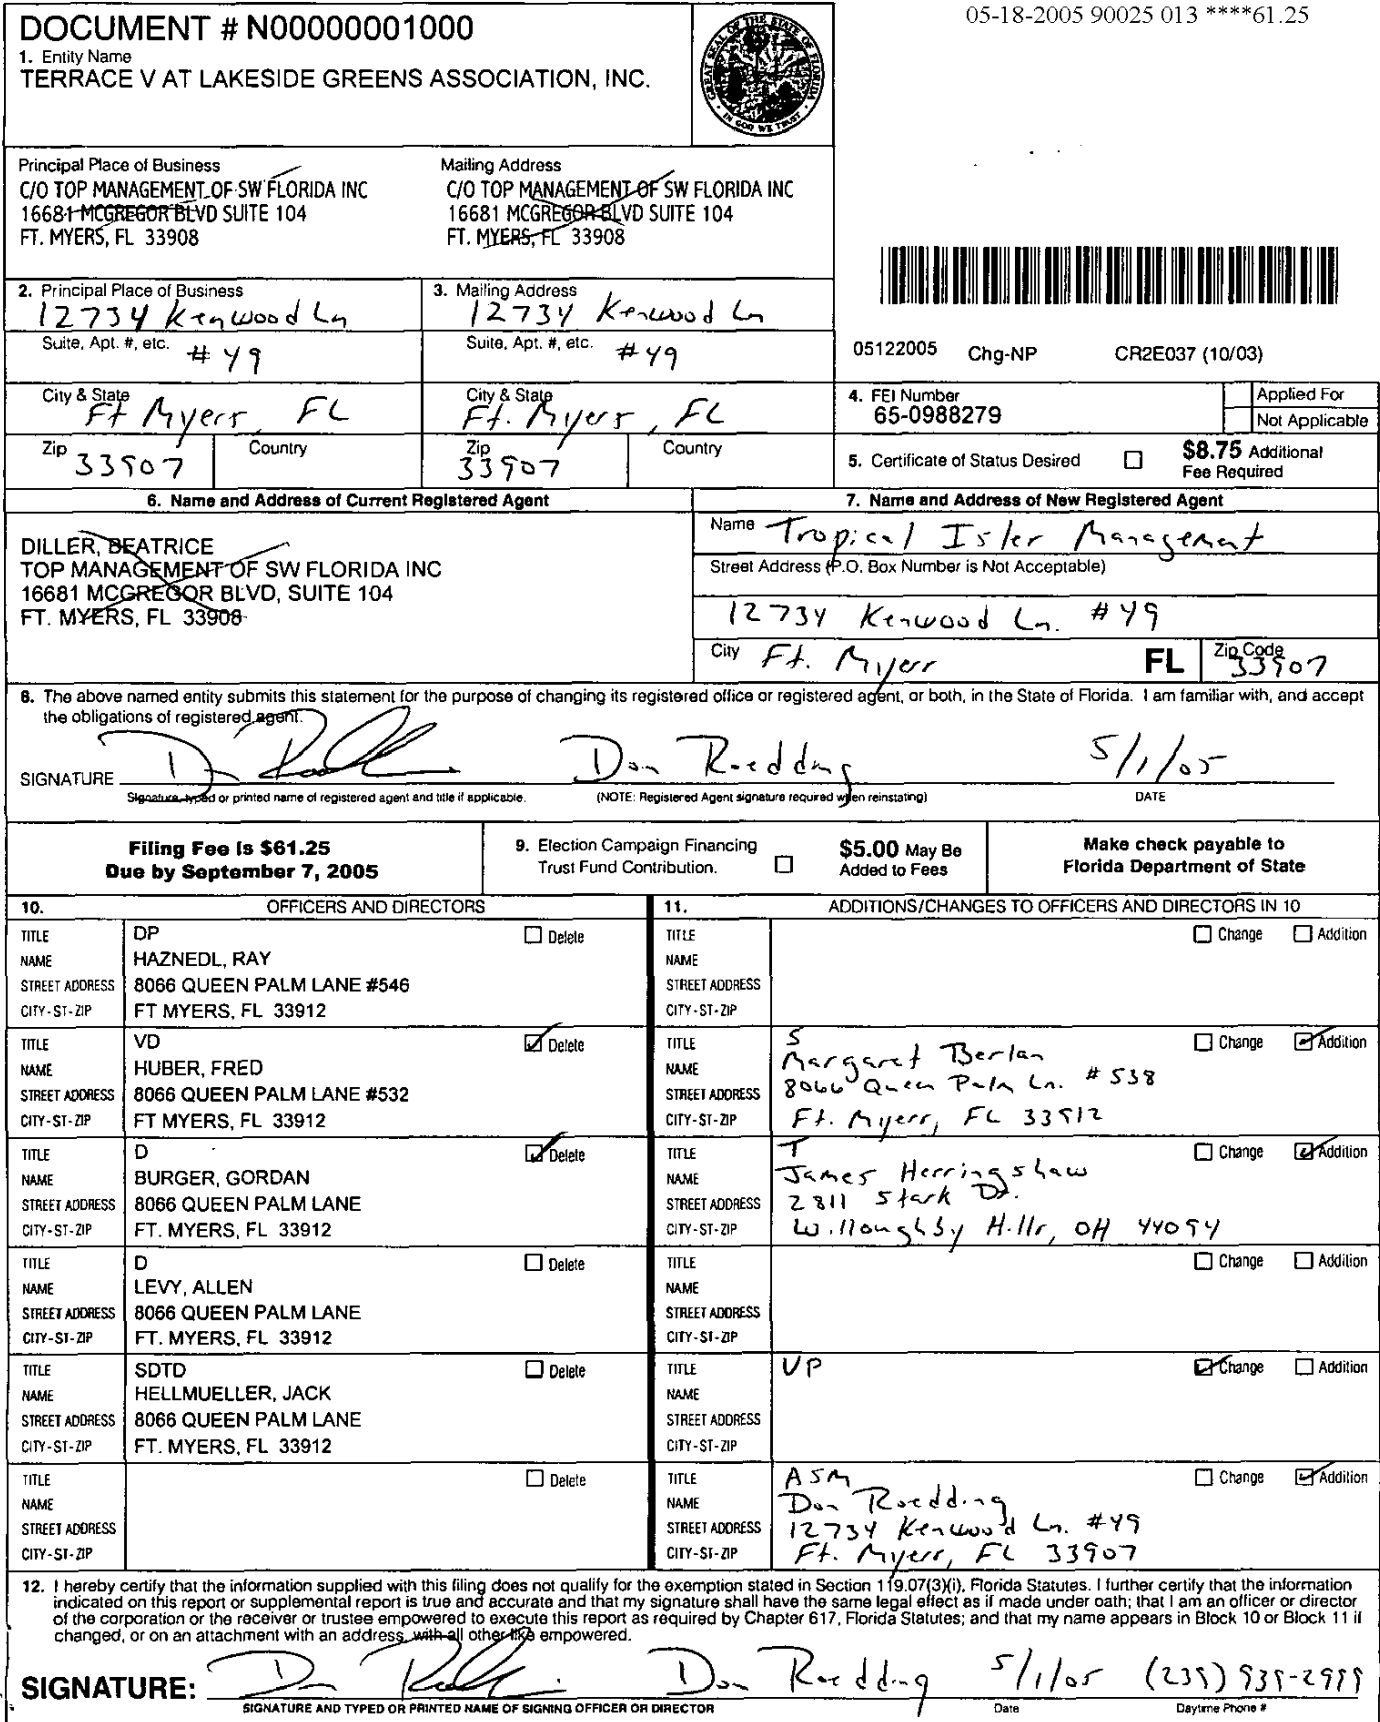 DOCUMENT # N00000001000
05-18-2005 90025 013 ****61.25
1. Entity Name
TERRACE V AT LAKESIDE GREENS ASSOCIATION, INC.
GREAT SEAL OF THE STATE OF FLORIDA
IN GOD WE TRUST
Principal Place of Business
C/O TOP MANAGEMENT OF SW FLORIDA INC
16681 MCGREGOR BLVD SUITE 104
FT. MYERS, FL 33908
Mailing Address
C/O TOP MANAGEMENT OF SW FLORIDA INC
16681 MCGREGOR BLVD SUITE 104
FT. MYERS, FL 33908
2. Principal Place of Business
12734 Kenwood Ln
Suite, Apt. #, etc. #49
City & State
Ft Myers, FL
Zip 33907 Country
3. Mailing Address
12734 Kenwood Ln
Suite, Apt. #, etc. #49
City & State
Ft. Myers, FL
Zip 33907 Country
05122005 Chg-NP CR2E037 (10/03)
4. FEI Number
65-0988279
Applied For
Not Applicable
5. Certificate of Status Desired
$8.75 Additional
Fee Required
6. Name and Address of Current Registered Agent
DILLER, BEATRICE
TOP MANAGEMENT OF SW FLORIDA INC
16681 MCGREGOR BLVD, SUITE 104
FT. MYERS, FL 33908
7. Name and Address of New Registered Agent
Name Tropical Isles Management
Street Address (P.O. Box Number is Not Acceptable)
12734 Kenwood Ln. #49
City Ft. Myers FL Zip Code 33907
8. The above named entity submits this statement for the purpose of changing its registered office or registered agent, or both, in the State of Florida. I am familiar with, and accept
the obligations of registered agent.
SIGNATURE Don Roedding 5/1/05
Signature, typed or printed name of registered agent and title if applicable. (NOTE: Registered Agent signature required when reinstating) DATE
Filing Fee is $61.25
Due by September 7, 2005
9. Election Campaign Financing
Trust Fund Contribution.
$5.00 May Be
Added to Fees
Make check payable to
Florida Department of State
10. OFFICERS AND DIRECTORS
11. ADDITIONS/CHANGES TO OFFICERS AND DIRECTORS IN 10
TITLE DP Delete
NAME HAZNEDL, RAY
STREET ADDRESS 8066 QUEEN PALM LANE #546
CITY-ST-ZIP FT MYERS, FL 33912
TITLE Change Addition
NAME
STREET ADDRESS
CITY-ST-ZIP
TITLE VD Delete
NAME HUBER, FRED
STREET ADDRESS 8066 QUEEN PALM LANE #532
CITY-ST-ZIP FT MYERS, FL 33912
TITLE S Change Addition
NAME Margaret Berlan
STREET ADDRESS 8066 Queen Palm Ln. #538
CITY-ST-ZIP Ft. Myers, FL 33912
TITLE D Delete
NAME BURGER, GORDAN
STREET ADDRESS 8066 QUEEN PALM LANE
CITY-ST-ZIP FT. MYERS, FL 33912
TITLE T Change Addition
NAME James Herringshaw
STREET ADDRESS 2811 Stark Dr.
CITY-ST-ZIP Willoughby Hills, OH 44094
TITLE D Delete
NAME LEVY, ALLEN
STREET ADDRESS 8066 QUEEN PALM LANE
CITY-ST-ZIP FT. MYERS, FL 33912
TITLE Change Addition
NAME
STREET ADDRESS
CITY-ST-ZIP
TITLE SDTD Delete
NAME HELLMUELLER, JACK
STREET ADDRESS 8066 QUEEN PALM LANE
CITY-ST-ZIP FT. MYERS, FL 33912
TITLE VP Change Addition
NAME
STREET ADDRESS
CITY-ST-ZIP
TITLE Delete
NAME
STREET ADDRESS
CITY-ST-ZIP
TITLE ASM Change Addition
NAME Don Roedding
STREET ADDRESS 12734 Kenwood Ln. #49
CITY-ST-ZIP Ft. Myers, FL 33907
12. I hereby certify that the information supplied with this filing does not qualify for the exemption stated in Section 119.07(3)(i), Florida Statutes. I further certify that the information
indicated on this report or supplemental report is true and accurate and that my signature shall have the same legal effect as if made under oath; that I am an officer or director
of the corporation or the receiver or trustee empowered to execute this report as required by Chapter 617, Florida Statutes; and that my name appears in Block 10 or Block 11 if
changed, or on an attachment with an address, with all other like empowered.
SIGNATURE: Don Roedding 5/1/05 (239) 939-2999
SIGNATURE AND TYPED OR PRINTED NAME OF SIGNING OFFICER OR DIRECTOR Date Daytime Phone #